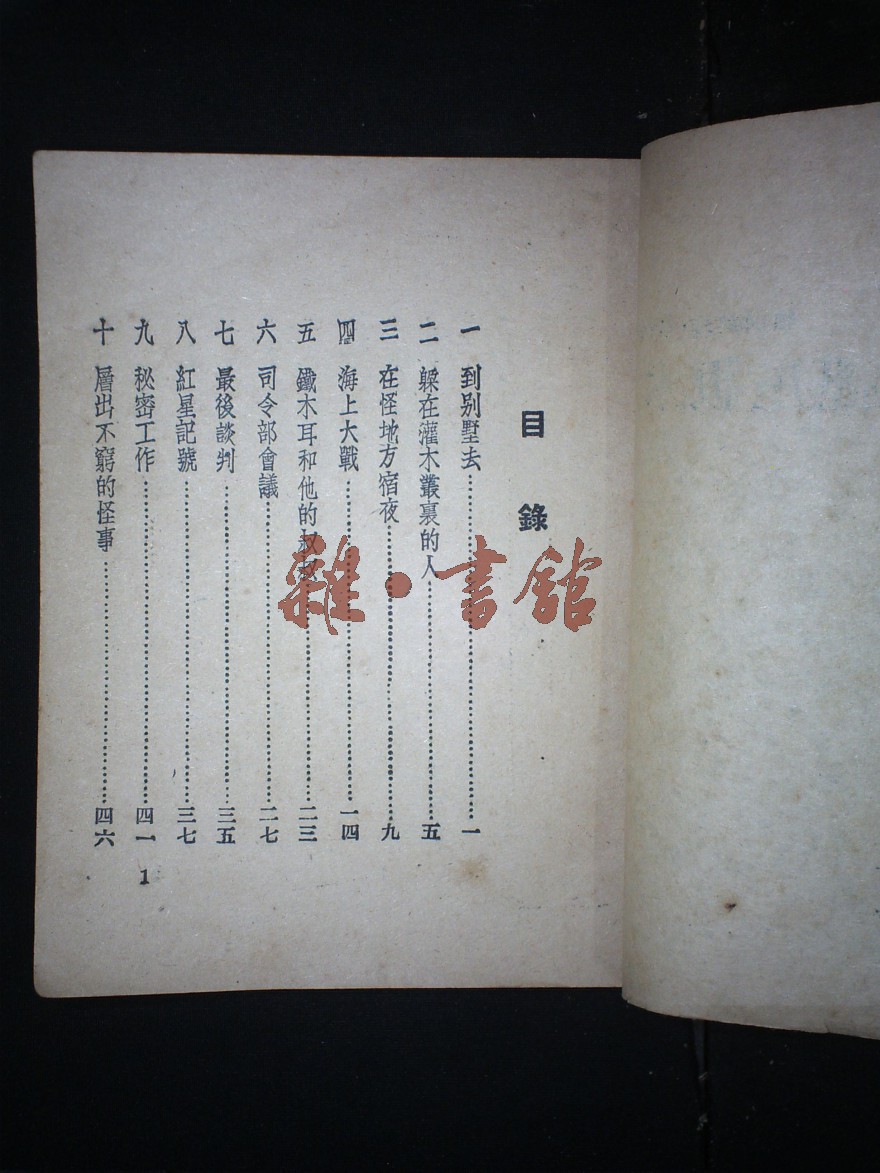 目錄
一 到别墅去……一
二 躲在灌木叢裏的人……五
三 在怪地方宿夜……九
四 海上大戰……一四
五 鐵木耳和他的叔叔……二三
六 司令部會議……二七
七 最後談判……三五
八 紅星記號……三七
九 秘密工作……四一
十 層出不窮的怪事……四六
1
雜·書館